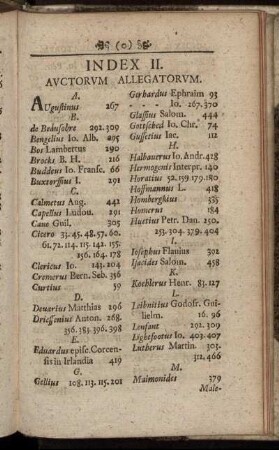 (o)
INDEX II.
AVCTORVM ALLEGATORVM.
A.
AUgustinus 267
B.
de Beausobre 292.309
Bengelius Io. Alb. 295
Bos Lambertus 290
Brocks B. H. 216
Buddeus Io. Fransc. 66
Buxtorffius I. 291
C.
Calmetus Aug. 442
Capellus Ludou. 291
Caue Guil. 305
Cicero 33.45.48.57.60.
61.72.114.115.142.155.
156.164.178
Clericus Io. 143.204
Cramerus Bern. Seb. 356
Curtius 39
D.
Deuarius Matthias 296
Driessenius Anton. 268.
356.383.396.398
E.
Eduardus episc. Corcen-
sis in Irlandia 419
G.
Gellius 108.113.115.201
Gerhardus Ephraim 93
- - - Io. 267.370
Glassius Salom. 444
Gottsched Io. Chr. 74
Gussetius Iac. 112
H.
Halbauerus Io. Andr. 418
Hermogenis Interpr. 140
Horatius 52.159.179.180
Hoffmannus L. 418
Hombergkius 355
Homerus 184
Huetius Petr. Dan. 250.
253.304.379.404
I.
Iosephus Flauius 302
Isacides Salom. 458
K.
Koehlerus Henr. 83.127
L.
Leibnitius Godofr. Gui-
lielm. 16.96
Lenfant 292.309
Lightfootus Io. 403.407
Lutherus Martin. 303.
312.466
M.
Maimonides 379
Male-